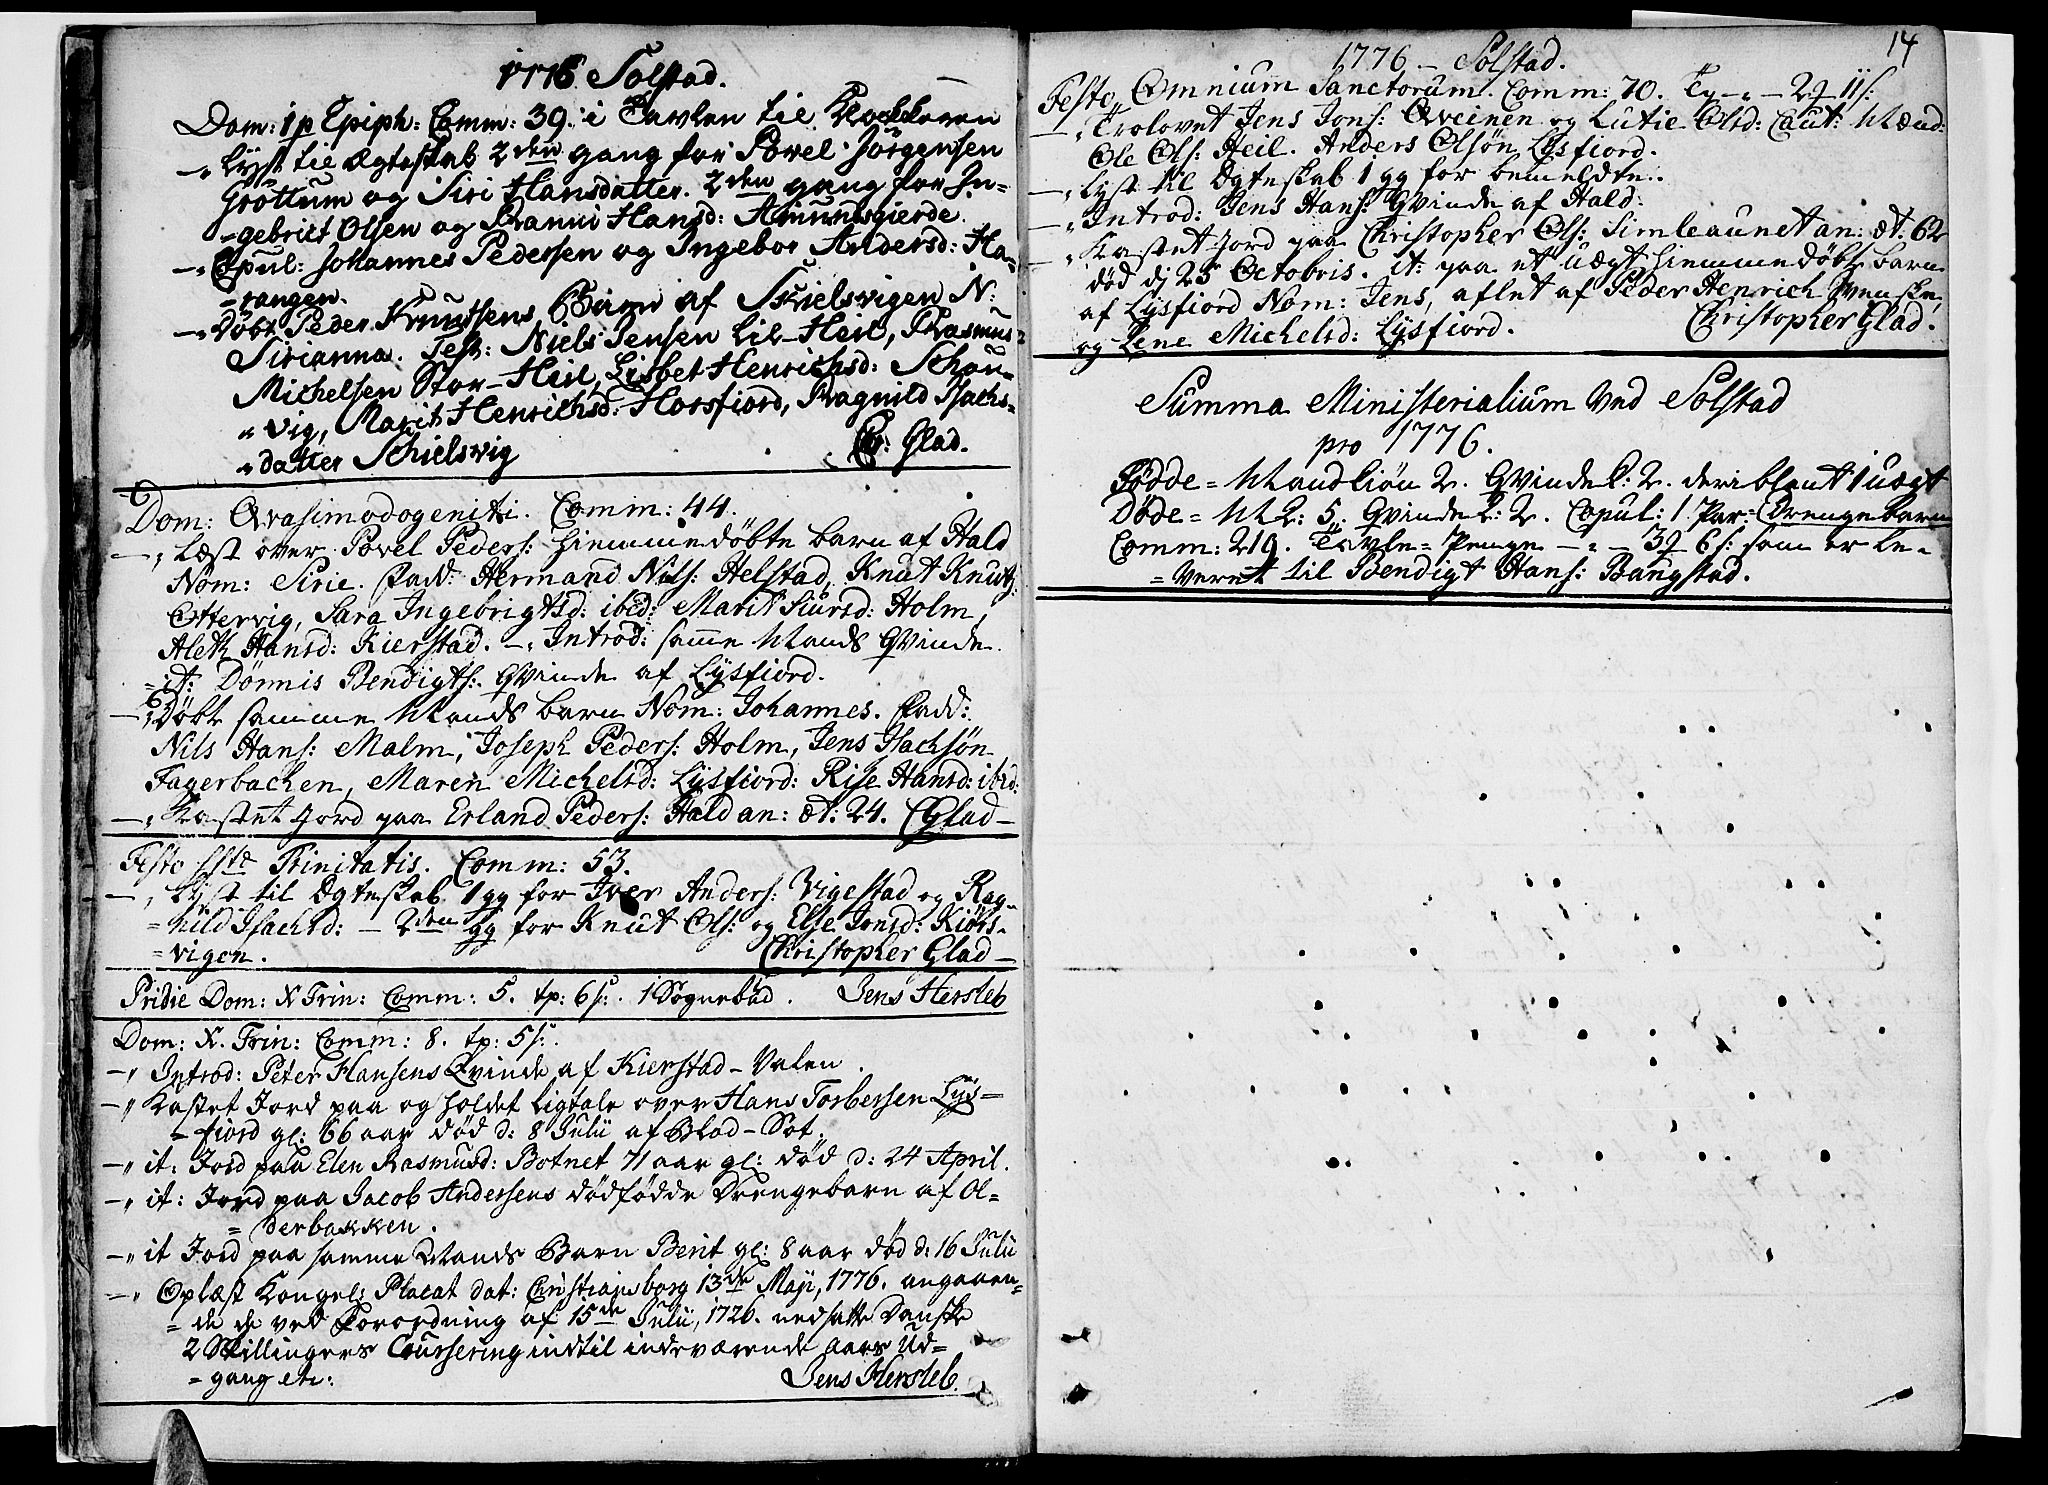 1776 Solstad.
Dom: 1 p Epiph: Comm: 39. i Tavlen til Klokkeren
-, Lyst til Ægteskab 2den gang for Povel Jörgensen
Gröttum og Siri Hansdatter. 2den gang for In-
-gebrict Olsen og Ranni Hansd: Amundsgierde.
-, Copul: Johannes Pedersen og Ingebor Andersd: Ha-
-rangen.
-, Döbt Peder Knudtsens Barn af Skielsvigen N:
Sirianna. Test: Niels Jensen Lil-Heil, Rasmus
Michelsen Stor-Heil, Lisbet Henrichsd: Schau-
"vig, Marit Henrichsd: Horsfiord, Ragnild Isachs-
"datter Schielsvig Chr: Glad.
Dom: Qvasimodogeniti. Comm: 44.
-, Læst over Povel Peders: hiemmedöbte barn af Hald
Nom: Sirie. Fadd: Hermand Nils: Helstad, Knut Knuts:
Ottervig, Sara Ingebrigtsd: ibid: Marit Siursd: Holm,
Aleth Hansd: Kierstad. -, Introd: samme Mands Qvinde.
=it: Dönnis Bendigts: Qvinde af Lysfiord.
-, Döbt samme Mands barn Nom: Johannes. Fadd:
Nils Hans: Malm, Joseph Peders: Holm, Jens Isachsön
Fagerbachen, Maren Michelsd: Lysfiord: Rise Hansd: ibid:
-, Kastet Jord paa Erland Peders: Hald an: æt: 24. CGlad-
Festo SStæ Trinitatis. Comm: 53.
-, Lyst til Ægteskab 1 gg for Iver Anders: Vigestad og Rag-
=nild Isachsd: - 2den gg for Knut Ols: og Else Jonsd: Kiörs-
=vigen. Christopher Glad-
Pridie Dom: X Trin: Comm: 5. tp: 6 s: 1 Sognebud. Jens Hersleb
Dom: X. Trin: Comm: 8. tp: 5 s:
-" Introd: Peter Hansens Qvinde af Kierstad-Valen.
-" Kastet Jord paa og holdet ligtale over Hans Torbersen Lys=
=fiord gl: 66 aar död d: 8 Julii af Blod-Sot.
-" it: Jord paa Elen Rasmusd: Botnet 71 aar gl: död d: 24 April.
-" it: Jord paa Jacob Andersens dödfödde Drengebarn af Ol=
=derbakken.
-" it Jord paa samme Mands Barn Berit gl: 8 aar död d: 16 Julii
-" Oplæst Kongel: Placat dat: Christiansborg 13de Maji, 1776. angaaen=
=de de ved Forordning af 15de Julii, 1726. nedsatte Danske
2 Skillingers Coursering indtil indeværende aars Ud=
=gang etc: Jens Hersleb.
14
1776 - Solstad.
Festo Omnium Sanctorum. Comm: 70. Tp -,- 2 11 s:
-, Trolovet Jens Jons: Qveinen og Lutie Olsd: Caut: Mænd:
Ole Ols: Heil. Anders Olsön Lysfiord.
-, Lyst til Ægteskab 1 gg for bemeldte.
-, Introd: Jens Hans: Qvinde af Hald.
-, Kastet Jord paa Christopher Ols: Simleaunet an: æt: 62
död dj 25 Octobris. it: paa et uægt hiemmedöbt barn
af Lysfiord Nom: Jens, aflet af Peder Henrich Svenske,
og Lene Michelsd: Lysfiord. Christopher Glad.
Summa Ministerialium ved Solstad
pro 1776.
Födde = Mandkiön 2. Qvindek: 2. deriblant 1 uægt
Döde = Mk: 5. Qvindek: 2. Copul: 1 Par: Drengebarn
Comm: 219. Tavle=Penge -,- 3 6 s: som er le-
=veret til Bendigt Hans: Bangstad.